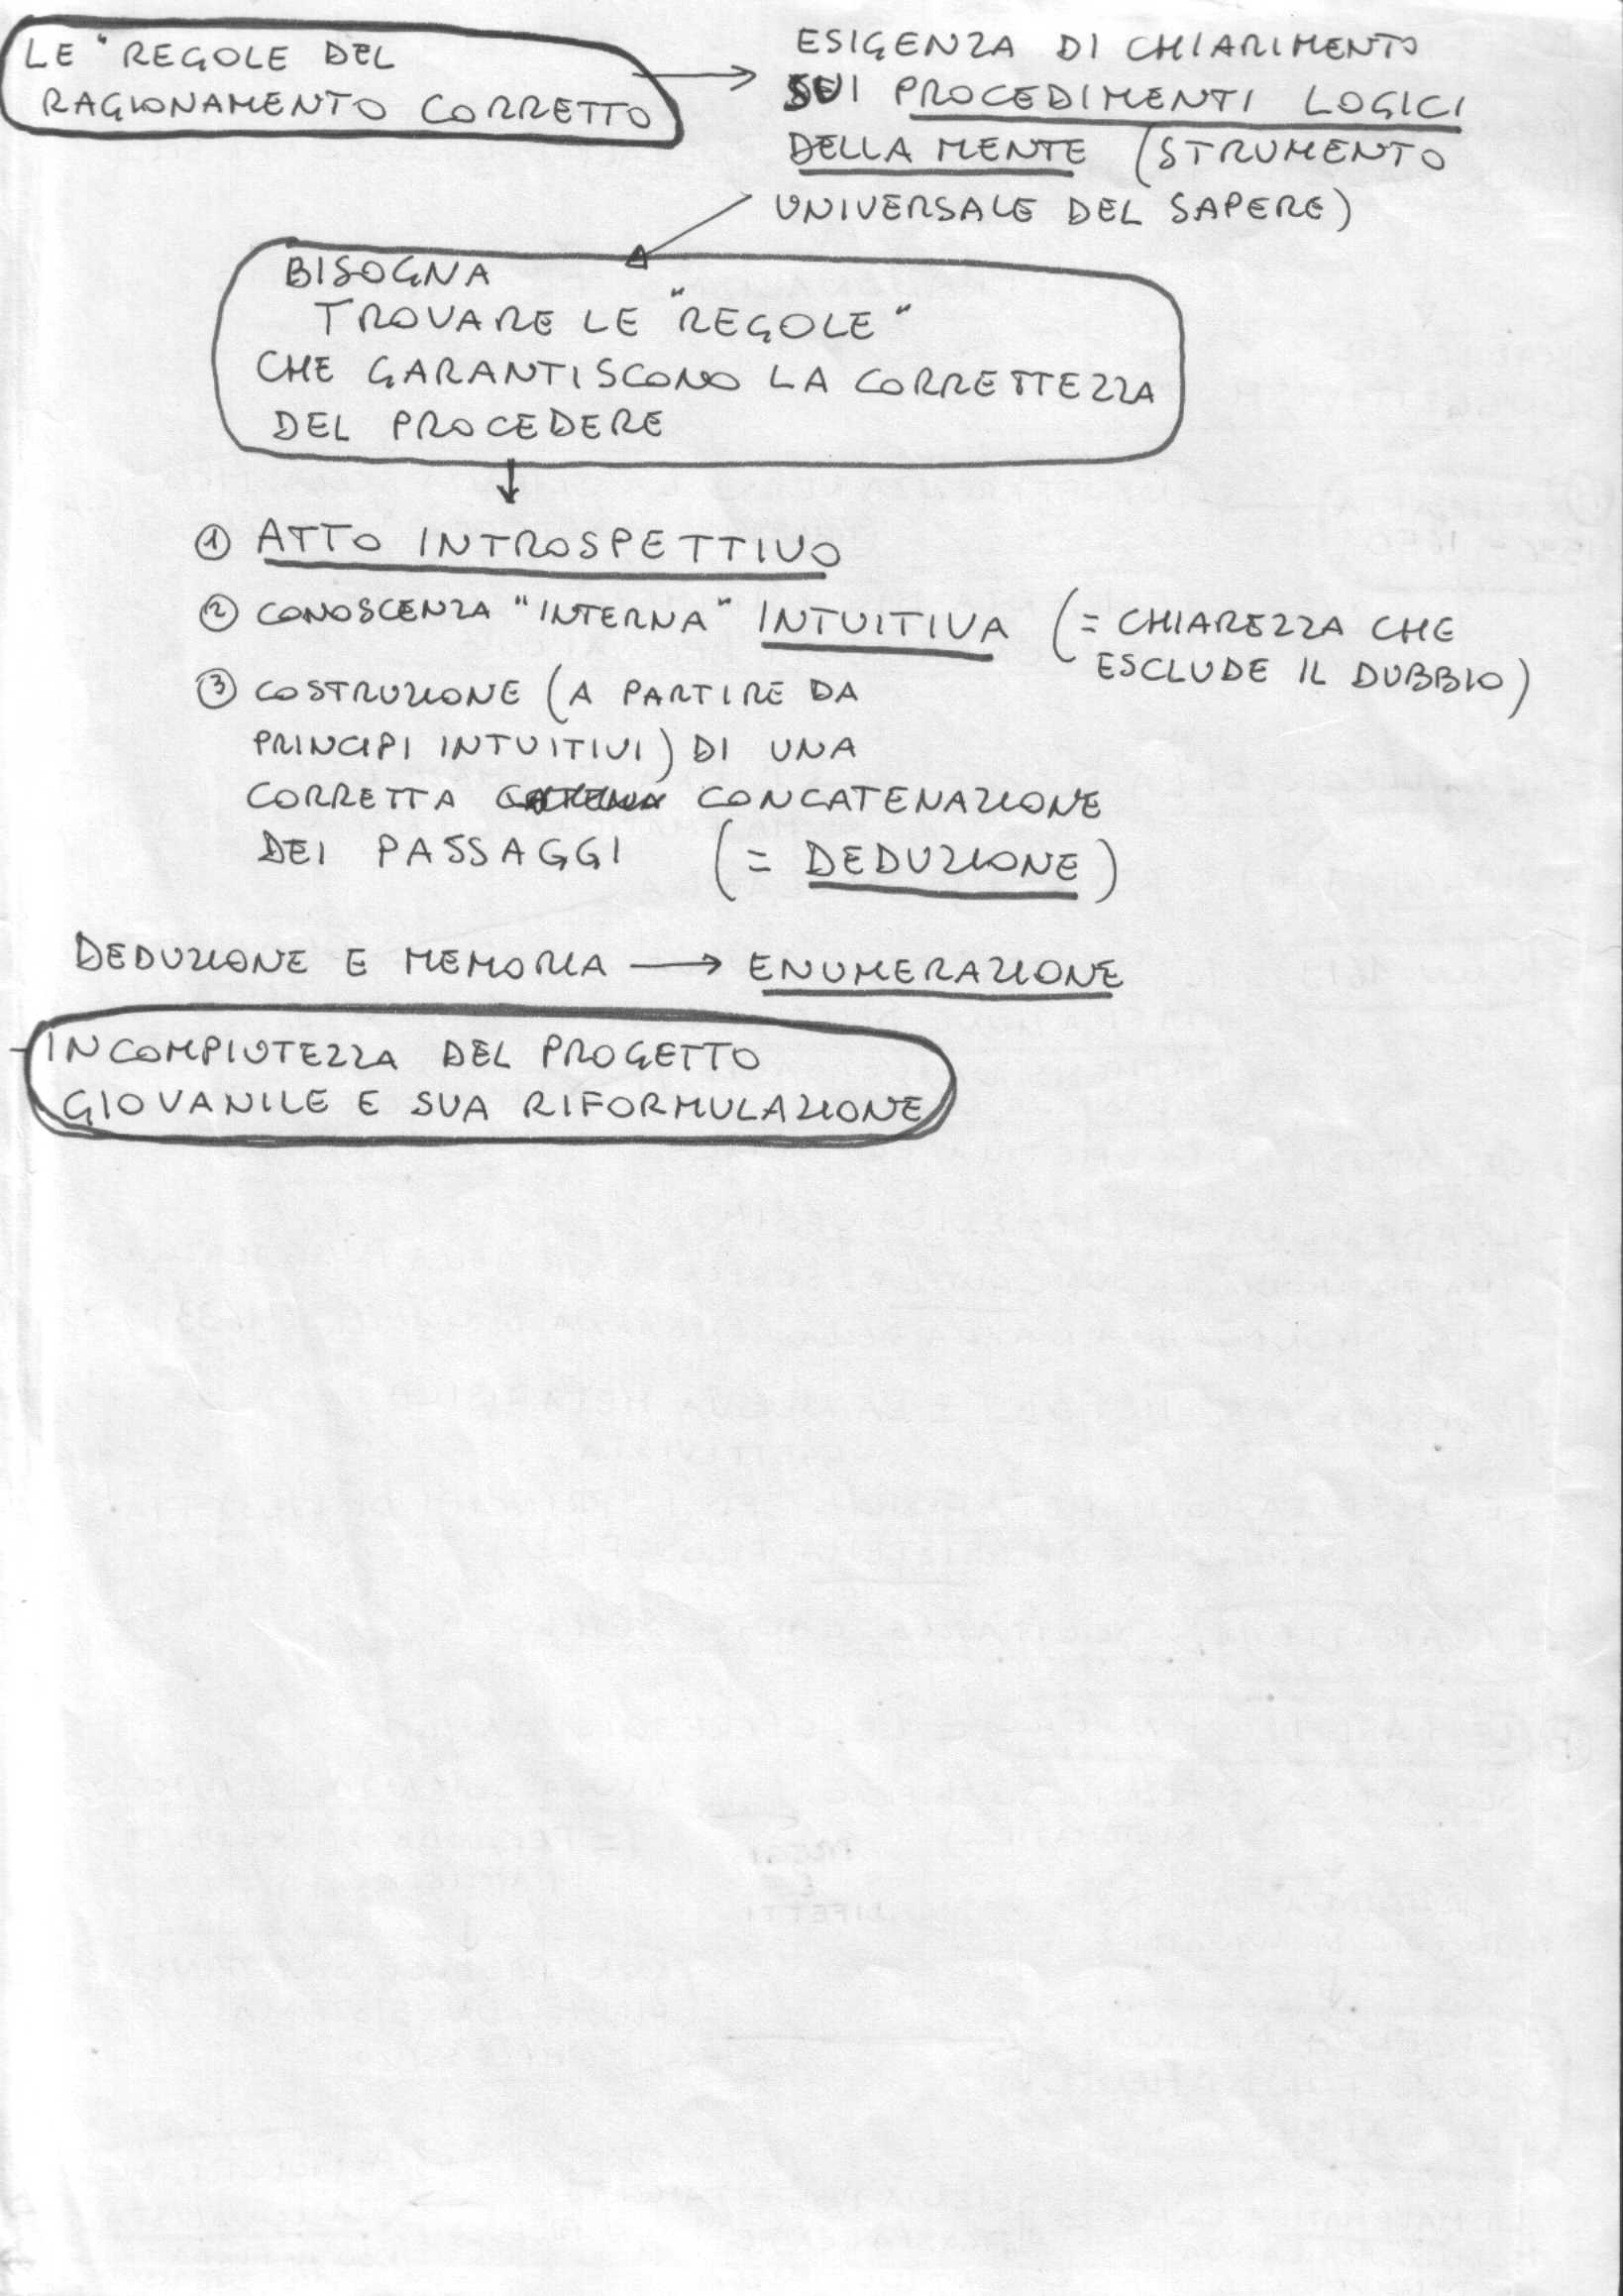 LE "REGOLE DEL
RAGIONAMENTO CORRETTO
ESIGENZA DI CHIARIMENTO
SUI PROCEDIMENTI LOGICI
DELLA MENTE (STRUMENTO
UNIVERSALE DEL SAPERE)
BISOGNA
TROVARE LE "REGOLE"
CHE GARANTISCONO LA CORRETTEZZA
DEL PROCEDERE
① ATTO INTROSPETTIVO
② CONOSCENZA "INTERNA" INTUITIVA (= CHIAREZZA CHE
ESCLUDE IL DUBBIO)
③ COSTRUZIONE (A PARTIRE DA
PRINCIPI INTUITIVI) DI UNA
CORRETTA CONCATENAZIONE
DEI PASSAGGI (= DEDUZIONE)
DEDUZIONE E MEMORIA → ENUMERAZIONE
- INCOMPIUTEZZA DEL PROGETTO
GIOVANILE E SUA RIFORMULAZIONE